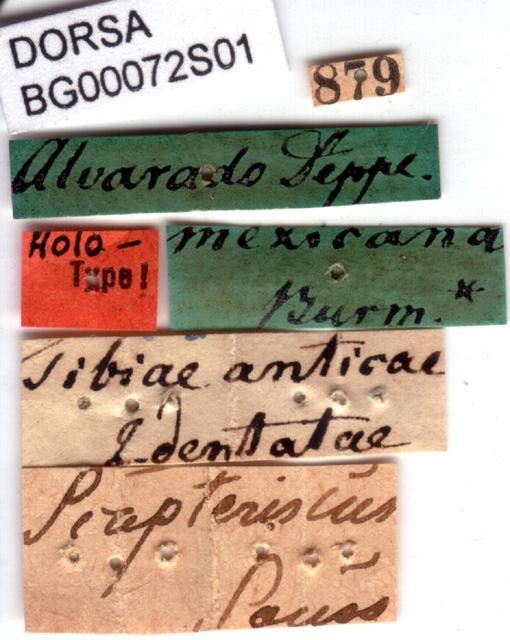 DORSA
BG00072S01
879
Alvarado Deppe.
Holo-
Type!
mexicana
Burm. *
Tibiae anticae
2dentatae
Scapteriscus
Sauss